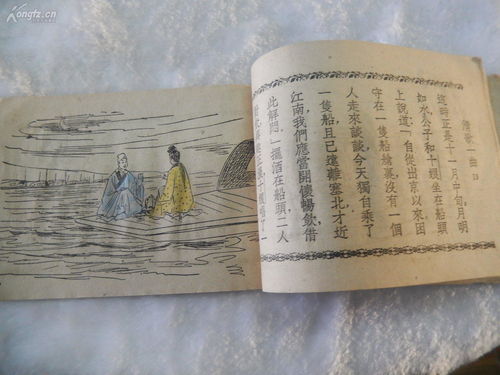 Kongfz.cn
清歌一曲。
這時正是十一月中旬,月明
如水,公子和十娘坐在船頭
上說道:「自從出京以來,困
守在一隻船艙裏,沒有一個
人走來談談,今天獨自乘了
一隻船,且已遠離塞北,才近
江南,我們應當開懷暢飲,借
此解悶。」攜酒在船頭,二人